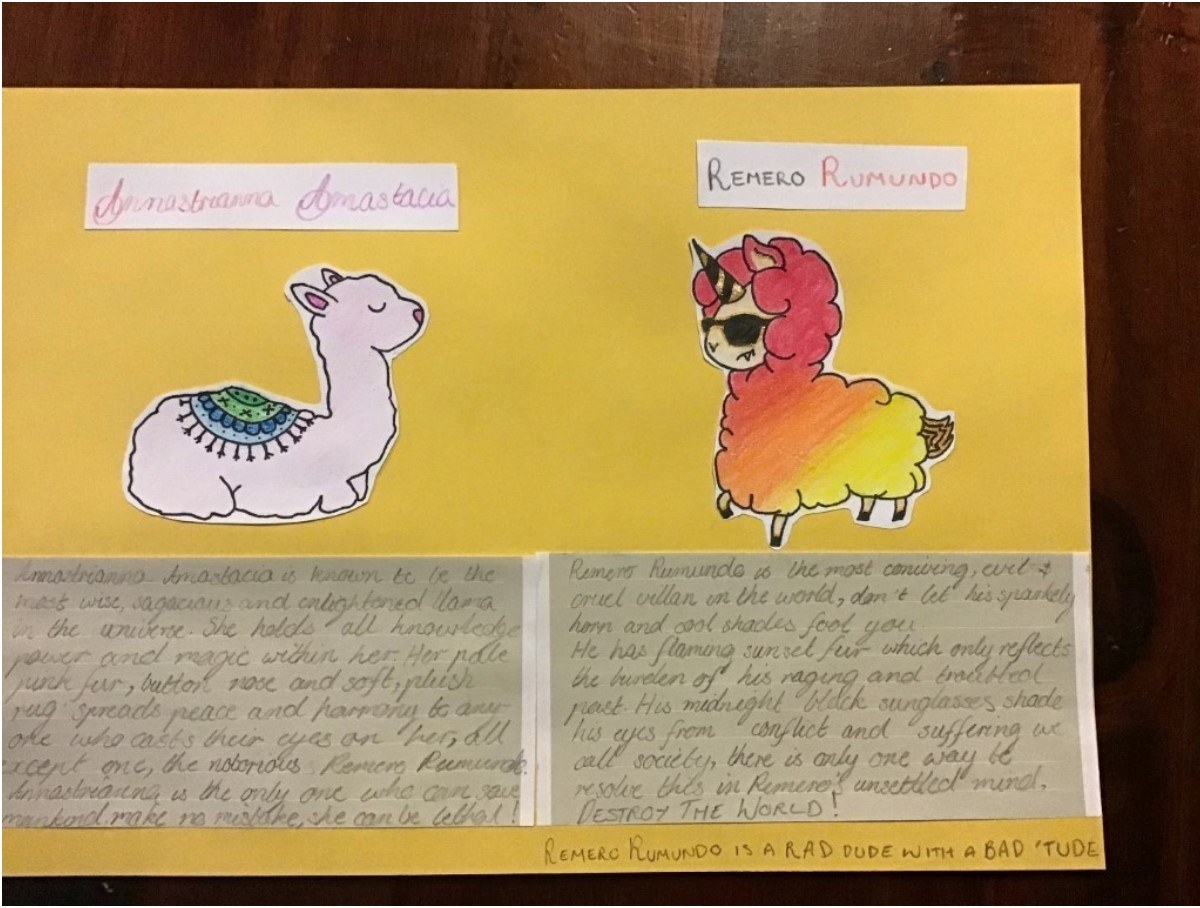 Annastrianna Amastacia
REMERO RUMUNDO
Annastrianna Amastacia is known to be the
most wise, sagacious and enlightened llama
in the universe. She holds all knowledge
power and magic within her. Her pale
pink fur, button nose and soft, plush
rug spreads peace and harmony to any
one who casts their eyes on her, all
except one, the notorious Remero Rumundo.
Annastrianna is the only one who can save
mankind, make no mistake, she can be lethal!
Remero Rumundo is the most coniving, evil &
cruel villan in the world, don't let his sparkely
horn and cool shades fool you
He has flaming sunset fur which only reflects
the burden of his raging and troubled
past. His midnight black sunglasses shade
his eyes from conflict and suffering we
call society, there is only one way be
resolve this in Remero's unsettled mind,
DESTROY THE WORLD!
REMERO RUMUNDO IS A RAD DUDE WITH A BAD 'TUDE